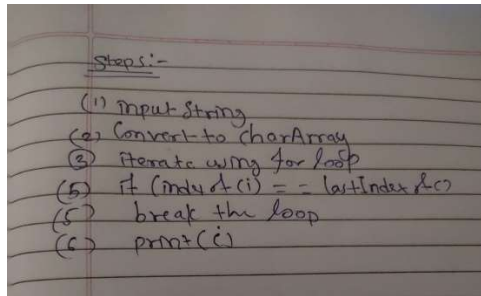 Steps:-
(1) input String
(2) Convert to charArray
(3) iterate using for loop
(5) if (index of (i) == lastIndex of ()
(5) break the loop
(6) print(i)